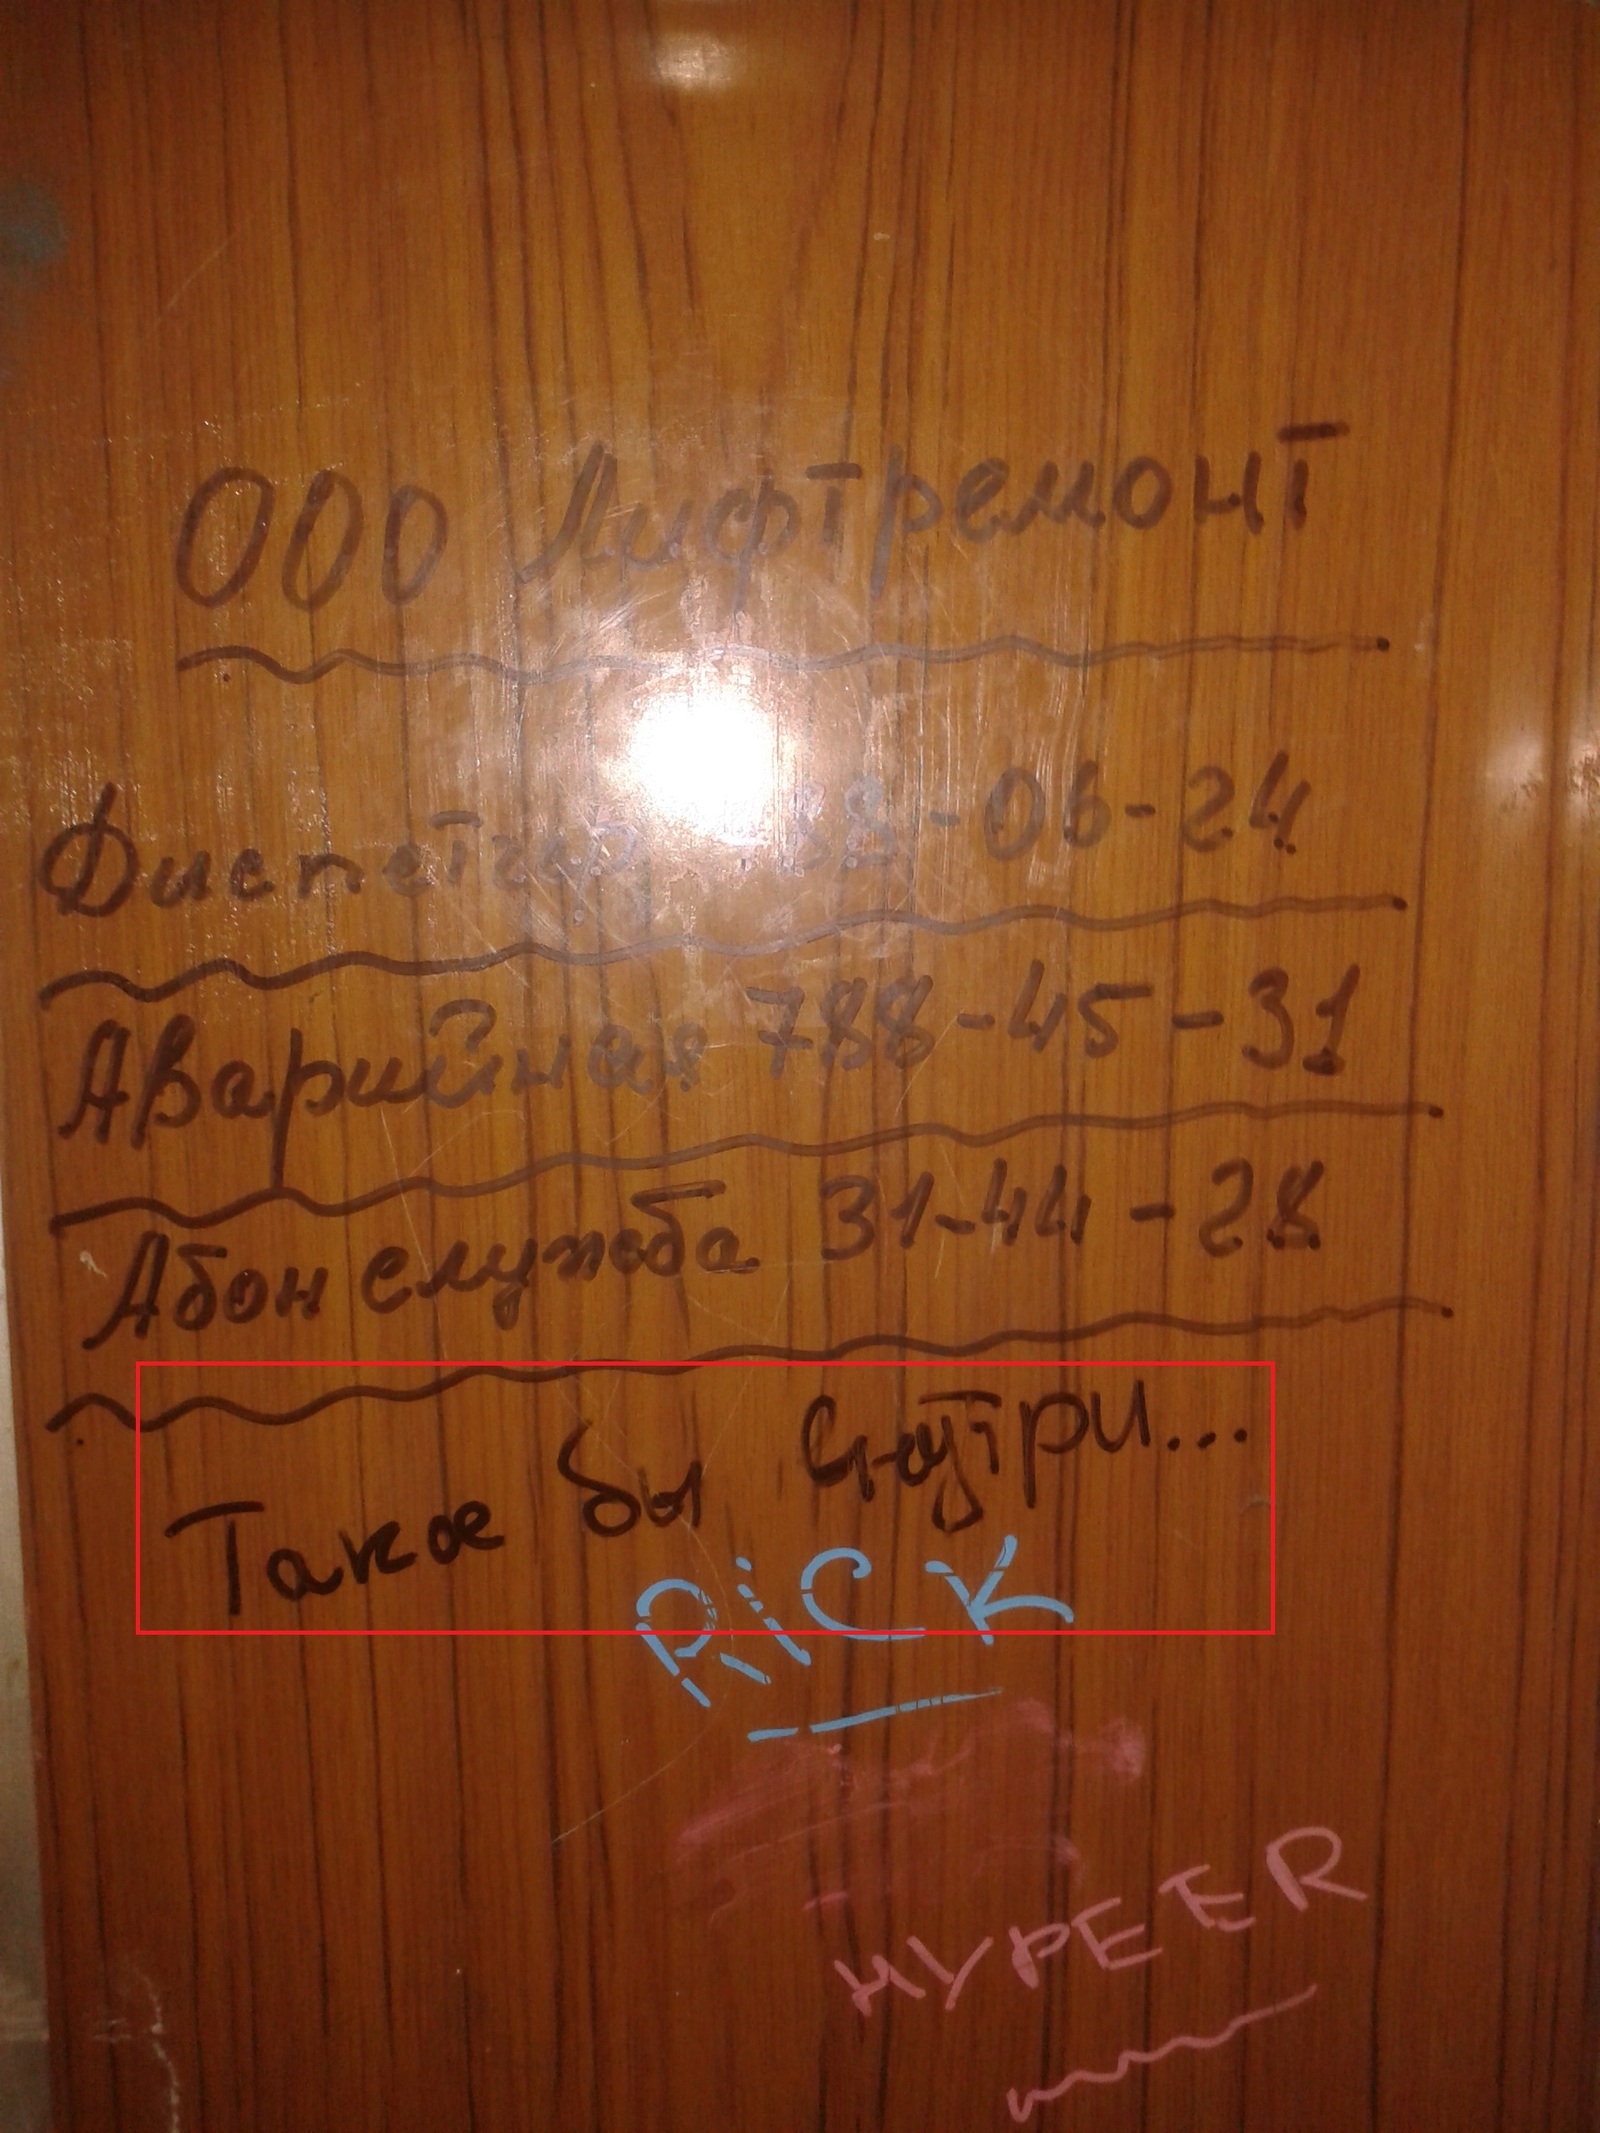 ООО Лифтремонт
Диспетчер -06-24
Аварийная 788-45-31
Абон служба 31-44-28
Такое бы внутри...
RiCK
HYPEER